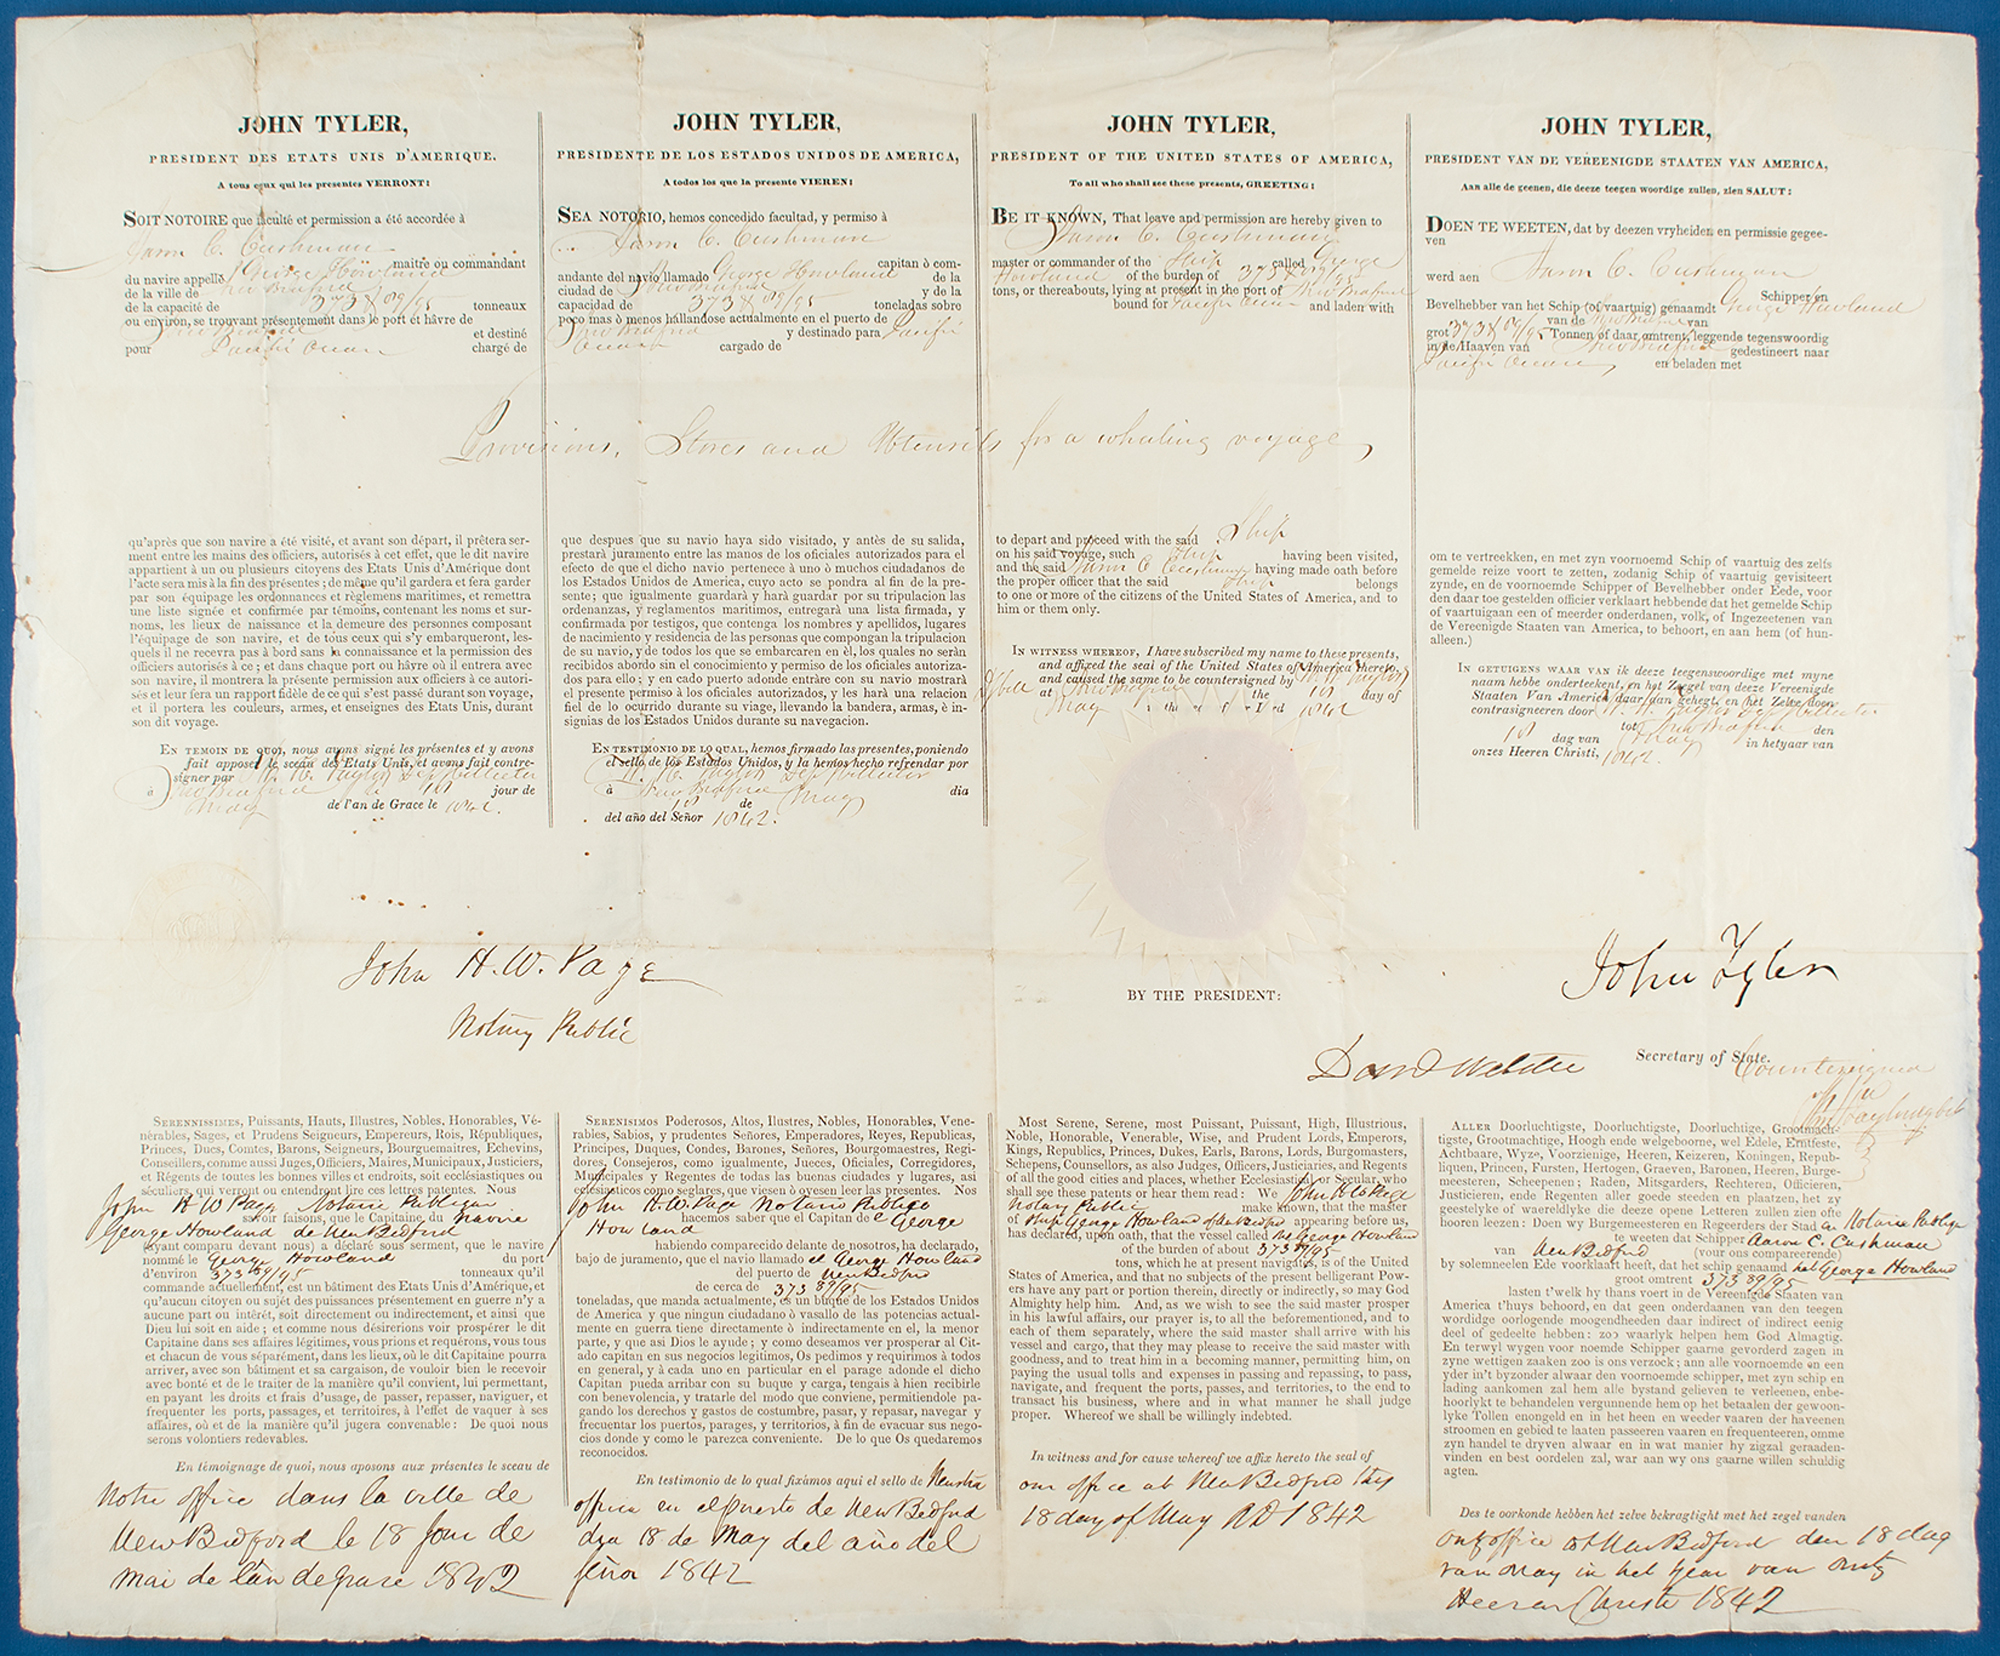 JOHN TYLER,
PRESIDENT DES ETATS UNIS D'AMERIQUE.
A tous ceux qui les presentes VERRONT:
SOIT NOTOIRE que faculté et permission a été accordée à
Aaron C. Cushman
maitre ou commandant
du navire appellé George Howland
de la ville de New Bedford
de la capacité de 373 & 89/95 tonneaux
ou environ, se trouvant présentement dans le port et hâvre de
New Bedford et destiné
pour Pacific Ocean chargé de
JOHN TYLER,
PRESIDENTE DE LOS ESTADOS UNIDOS DE AMERICA,
A todos los que la presente VIEREN:
SEA NOTORIO, hemos concedido facultad, y permiso à
Aaron C. Cushman
capitan ò com-
andante del navio llamado George Howland de la
ciudad de New Bedford y de la
capacidad de 373 & 89/95 toneladas sobre
poco mas ò menos hallandose actualmente en el puerto de
New Bedford y destinado para Pacific
Ocean cargado de
JOHN TYLER,
PRESIDENT OF THE UNITED STATES OF AMERICA,
To all who shall see these presents, GREETING:
BE IT KNOWN, That leave and permission are hereby given to
Aaron C. Cushman
master or commander of the Ship called George
Howland of the burden of 373 & 89/95
tons, or thereabouts, lying at present in the port of New Bedford
bound for Pacific Ocean and laden with
JOHN TYLER,
PRESIDENT VAN DE VEREENIGDE STAATEN VAN AMERICA,
Aan alle de geenen, die deeze teegen woordige zullen, zien SALUT:
DOEN TE WEETEN, dat by deezen vryheiden en permissie gegee-
ven
werd aen Aaron C. Cushman
Schipper en
Bevelhebber van het Schip (of vaartuig) genaamdt George Howland
van de New Bedford van
grot 373 & 89/95 Tonnen of daar omtrent, leggende tegenswoordig
in de Haaven van New Bedford gedestineert naar
Pacific Ocean, en beladen met
Provisions, Stores and Utensils for a whaling voyage,
qu'après que son navire a été visité, et avant son départ, il prêtera ser-
ment entre les mains des officiers, autorisés à cet effet, que le dit navire
appartient à un ou plusieurs citoyens des Etats Unis d'Amérique dont
l'acte sera mis à la fin des présentes; de même qu'il gardera et fera garder
par son équipage les ordonnances et règlemens maritimes, et remettra
une liste signée et confirmée par témoins, contenant les noms et sur-
noms, les lieux de naissance et la demeure des personnes composant
l'équipage de son navire, et de tous ceux qui s'y embarqueront, les-
quels il ne recevra pas à bord sans la connaissance et la permission des
officiers autorisés à ce; et dans chaque port ou hâvre où il entrera avec
son navire, il montrera la présente permission aux officiers à ce autori-
sés et leur fera un rapport fidèle de ce qui s'est passé durant son voyage,
et il portera les couleurs, armes, et enseignes des Etats Unis, durant
son dit voyage.
EN TEMOIN DE QUOI, nous avons signé les présentes et y avons
fait apposer le sceau des Etats Unis, et avons fait contre-
signer par
à New Bedford le 18 jour de
May de l'an de Grace le 1842.
que despues que su navio haya sido visitado, y antès de su salida,
prestarà juramento entre las manos de los oficiales autorizados para el
efecto de que el dicho navio pertenece à uno ò muchos ciudadanos de
los Estados Unidos de America, cuyo acto se pondra al fin de la pre-
sente; que igualmente guardarà y harà guardar por su tripulacion las
ordenanzas, y reglamentos maritimos, entregarà una lista firmada, y
confirmada por testigos, que contenga los nombres y apellidos, lugares
de nacimiento y residencia de las personas que compongan la tripulacion
de su navio, y de todos los que se embarcaren en èl, los quales no seràn
recibidos abordo sin el conocimiento y permiso de los oficiales autoriza-
dos para ello; y en cado puerto adonde entràre con su navio mostrarà
el presente permiso à los oficiales autorizados, y les harà una relacion
fiel de lo ocurrido durante su viage, llevando la bandera, armas, è in-
signias de los Estados Unidos durante su navegacion.
EN TESTIMONIO DE LO QUAL, hemos firmado las presentes, poniendo
el sello de los Estados Unidos, y la hemos hecho refrendar por
à New Bedford dia
18 de May
del año del Señor 1842.
to depart and proceed with the said Ship
on his said voyage, such Ship having been visited,
and the said Aaron C Cushman having made oath before
the proper officer that the said Ship belongs
to one or more of the citizens of the United States of America, and to
him or them only.
IN WITNESS WHEREOF, I have subscribed my name to these presents,
and affixed the seal of the United States of America thereto,
and caused the same to be countersigned by
at New Bedford the 18 day of
May 1842
om te vertreekken, en met zyn voornoemd Schip of vaartuig des zelfs
gemelde reize voort te zetten, zodanig Schip of vaartuig gevisiteert
zynde, en de voornoemde Schipper of Bevelhebber onder Eede, voor
den daar toe gestelden officier verklaart hebbende dat het gemelde Schip
of vaartuigaan een of meerder onderdanen, volk, of Ingezeetenen van
de Vereenigde Staaten van America, to behoort, en aan hem (of hun-
alleen.)
IN GETUIGENS WAAR VAN ik deeze teegenswoordige met myne
naam hebbe onderteekent, en het Zeegel van deeze Vereenigde
Staaten Van America daar aan gehegt, en het Zelve doen
contrasigneeren door
tot New Bedford den
18 dag van May in hetyaar van
onzes Heeren Christi, 1842.
John H. W. Page
Notary Public
BY THE PRESIDENT:
John Tyler
Danl Webster Secretary of State.
Countersigned
SERENNISSIMES, Puissants, Hauts, Illustres, Nobles, Honorables, Vé-
nèrables, Sages, et Prudens Seigneurs, Empereurs, Rois, Républiques,
Princes, Ducs, Comtes, Barons, Seigneurs, Bourguemaitres, Echevins,
Conseillers, comme aussi Juges, Officiers, Maires, Municipaux, Justiciers,
et Régents de toutes les bonnes villes et endroits, soit ecclésiastiques ou
séculiers, qui verront ou entendront lire ces lettres patentes. Nous
John H W Page Notaire Publique
savoir faisons, que le Capitaine du Navire
George Howland de New Bedford
(ayant comparu devant nous) a déclaré sous serment, que le navire
nommé le George Howland du port
d'environ 373 89/95 tonneaux qu'il
commande actuellement, est un bâtiment des Etats Unis d'Amérique, et
qu'aucun citoyen ou sujét des puissances présentement en guerre n'y a
aucune part ou intérêt, soit directement ou indirectement, et ainsi que
Dieu lui soit en aide; et comme nous désirerions voir prospérer le dit
Capitaine dans ses affaires légitimes, vous prions et requérons, vous tous
et chacun de vous séparément, dans les lieux, où le dit Capitaine pourra
arriver, avec son bâtiment et sa cargaison, de vouloir bien le recevoir
avec bonté et de le traiter de la manière qu'il convient, lui permettant,
en payant les droits et frais d'usage, de passer, repasser, naviguer, et
frequenter les ports, passages, et territoires, à l'effet de vaquer à ses
affaires, où et de la manière qu'il jugera convenable: De quoi nous
serons volontiers redevables.
En témoignage de quoi, nous aposons aux présentes le sceau de
notre office dans la ville de
New Bedford le 18 Jour de
Mai de l'an de grase 1842
SERENISIMOS Poderosos, Altos, Ilustres, Nobles, Honorables, Vene-
rables, Sabios, y prudentes Señores, Emperadores, Reyes, Republicas,
Principes, Duques, Condes, Barones, Señores, Bourgomaestres, Regi-
dores, Consejeros, como igualmente, Jueces, Oficiales, Corregidores,
Municipales y Regentes de todas las buenas ciudades y lugares, asi
eclesiasticos como seglares, que viesen ò oyesen leer las presentes. Nos
John H. W. Page Notario Publico
hacemos saber que el Capitan de el George
Howland
habiendo comparecido delante de nosotros, ha declarado,
bajo de juramento, que el navio llamado el George Howland
del puerto de New Bedford
de cerca de 373 89/95
toneladas, que manda actualmente, es un buque de los Estados Unidos
de America y que ningun ciudadano ò vasallo de las potencias actual-
mente en guerra tiene directamente ò indirectamente en el, la menor
parte, y que asi Dios le ayude; y como deseamos ver prosperar al Cit-
ado capitan en sus negocios legitimos, Os pedimos y requirimos à todos
en general, y à cada uno en particular en el parage adonde el dicho
Capitan pueda arribar con su buque y carga, tengais à hien recibirle
con benevolencia, y tratarle del modo que conviene, permitiendole pa-
gando los derechos y gastos de costumbre, pasar, y repasar, navegar y
frecuentar los puertos, parages, y territorios, à fin de evacuar sus nego-
cios donde y como le parezca conveniente. De lo que Os quedaremos
reconocidos.
En testimonio de lo qual fixámos aqui el sello de Nuestra
officia en el puerto de New Bedford
dia 18 de May del año del
señor 1842
Most Serene, Serene, most Puissant, Puissant, High, Illustrious,
Noble, Honorable, Venerable, Wise, and Prudent Lords, Emperors,
Kings, Republics, Princes, Dukes, Earls, Barons, Lords, Burgomasters,
Schepens, Counsellors, as also Judges, Officers, Justiciaries, and Regents
of all the good cities and places, whether Ecclesiastical or Secular, who
shall see these patents or hear them read: We John H W Page
Notary Public make known, that the master
of Ship George Howland of New Bedford appearing before us,
has declared, upon oath, that the vessel called the George Howland
of the burden of about 373 89/95
tons, which he at present navigates, is of the United
States of America, and that no subjects of the present belligerant Pow-
ers have any part or portion therein, directly or indirectly, so may God
Almighty help him. And, as we wish to see the said master prosper
in his lawful affairs, our prayer is, to all the beforementioned, and to
each of them separately, where the said master shall arrive with his
vessel and cargo, that they may please to receive the said master with
goodness, and to treat him in a becoming manner, permitting him, on
paying the usual tolls and expenses in passing and repassing, to pass,
navigate, and frequent the ports, passes, and territories, to the end to
transact his business, where and in what manner he shall judge
proper. Whereof we shall be willingly indebted.
In witness and for cause whereof we affix hereto the seal of
our office at New Bedford this
18 day of May AD 1842
ALLER Doorluchtigste, Doorluchtigste, Doorluchtige, Grootmach-
tigste, Grootmachtige, Hoogh ende welgeboorne, wel Edele, Erntfeste,
Achtbaare, Wyze, Voorzienige, Heeren, Keizeren, Koningen, Repub-
liquen, Princen, Fursten, Hertogen, Graeven, Baronen, Heeren, Burge-
meesteren, Scheepenen; Raden, Mitsgarders, Rechteren, Officieren,
Justicieren, ende Regenten aller goede steeden en plaatzen, het zy
geestelyke of waereldlyke die deeze opene Letteren zullen zien ofte
hooren leezen: Doen wy Burgemeesteren en Regeerders der Stad en Notaire Publique
te weeten dat Schipper Aaron C. Cushman
van New Bedford (vour ons compareerende)
by solemneelen Ede voorklaart heeft, dat het schip genaamd het George Howland
groot omtrent 373 89/95
lasten t'welk hy thans voert in de Vereenigde Staaten van
America t'huys behoord, en dat geen onderdaanen van den teegen
wordidge oorlogende moogendheeden daar indirect of indirect eenig
deel of gedeelte hebben: zoo waarlyk helpen hem God Almagtig.
En terwyl wygen voor noemde Schipper gaarne gevorderd zagen in
zyne wettigen zaaken zoo is ons verzock; ann alle voornoemde en een
yder in't byzonder alwaar den voornoemde schipper, met zyn schip en
lading aankomen zal hem alle bystand gelieven te verleenen, enbe-
hoorlykt te behandelen vergunnende hem op het betaalen der gewoon-
lyke Tollen enongeld en in het heen en weeder vaaren der haveenen
stroomen en gebied te laaten passeeren vaaren en frequenteeren, omme
zyn handel te dryven alwaar en in wat manier hy zigzal geraaden-
vinden en best oordelen zal, war aan wy ons gaarne willen schuldig
agten.
Des te oorkonde hebben het zelve bekragtight met het zegel vanden
ons office at New Bedford den 18 dag
van May in het year van
Heeren Christi 1842